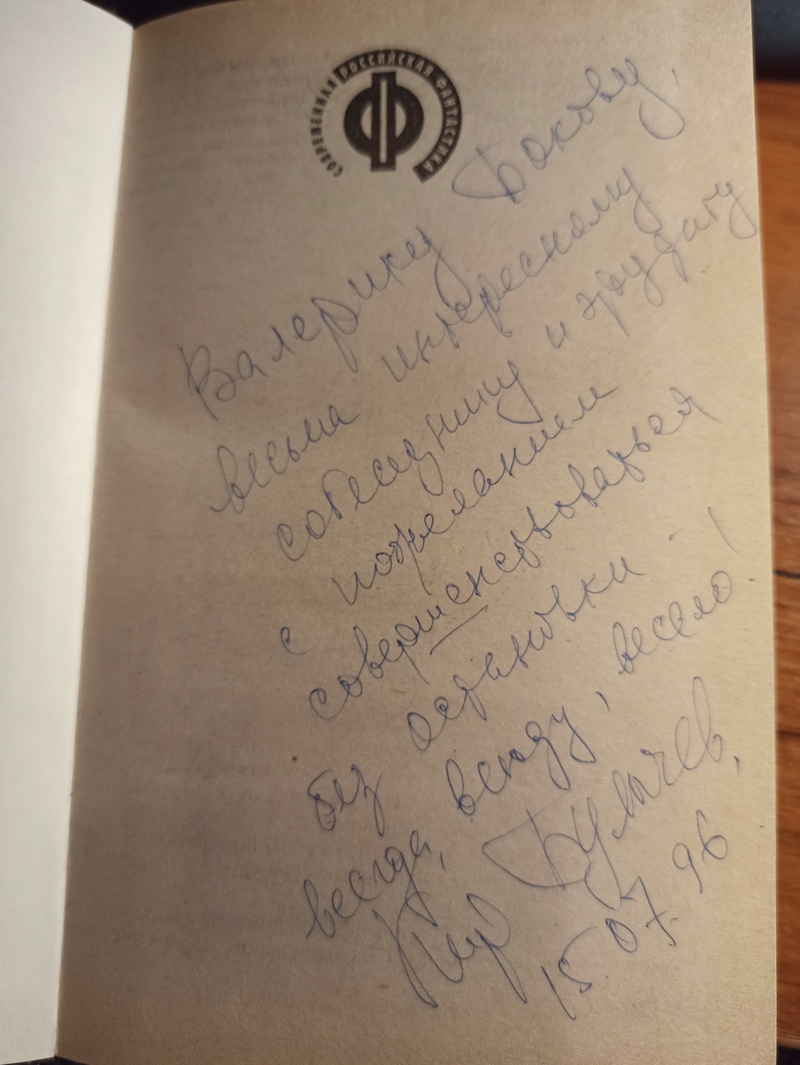 СОВРЕМЕННАЯ РОССИЙСКАЯ ФАНТАСТИКА
Ф
Валерику Бокову,
весьма интересному
собеседнику и эрудиту
с пожеланием
совершенствоваться
без остановки -
всегда, всюду, весело!
Кир Булычев.
15.07.96